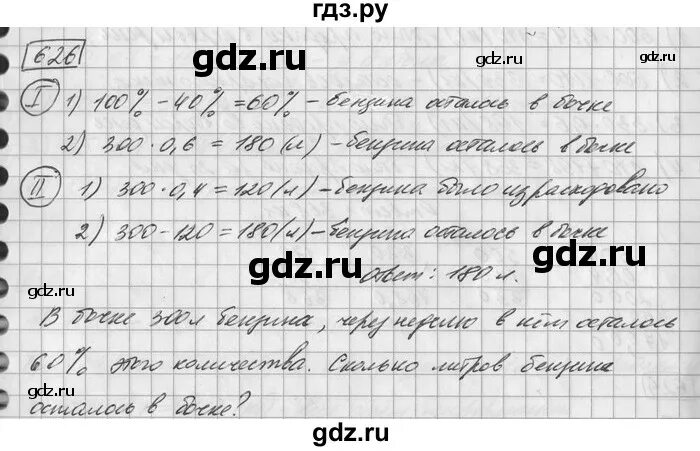 гдз.ру
gdz.ru
gdz.ru
626
I 1) 100% - 40% = 60% - бензина осталось в бочке
2) 300 · 0,6 = 180 (л) - бензина осталось в бочке
gdz.ru
gdz.ru
II 1) 300 · 0,4 = 120 (л) - бензина было израсходовано
2) 300 - 120 = 180 (л) - бензина осталось в бочке
gdz.ru
gdz.ru
Ответ: 180 л.
В бочке 300 л бензина, через неделю в ней осталось
60% этого количества. Сколько литров бензина
осталось в бочке?
gdz.ru
gdz.ru